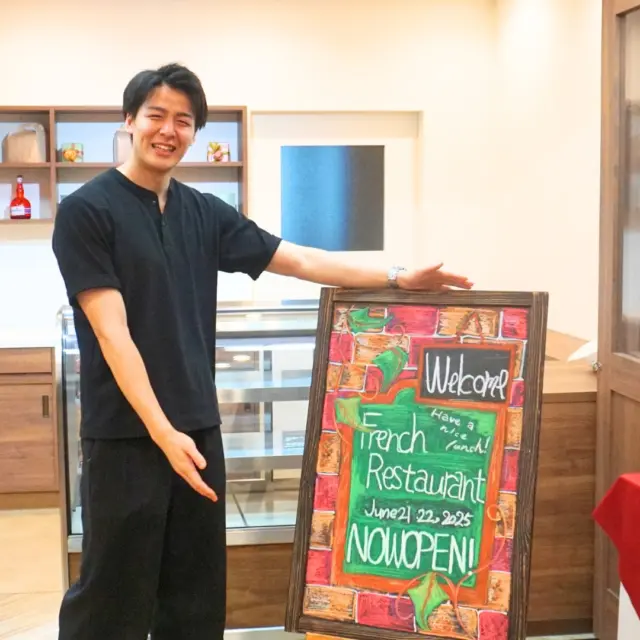 Welcome
Have a
nice
lunch!
French
Restaurant
June21 22,2025
NOWOPEN!